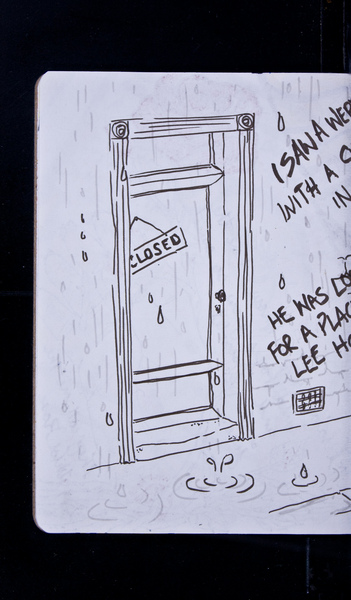 CLOSED
I SAW A WER
WITH A
IN
HE WAS LO
FOR A PLAC
LEE HO